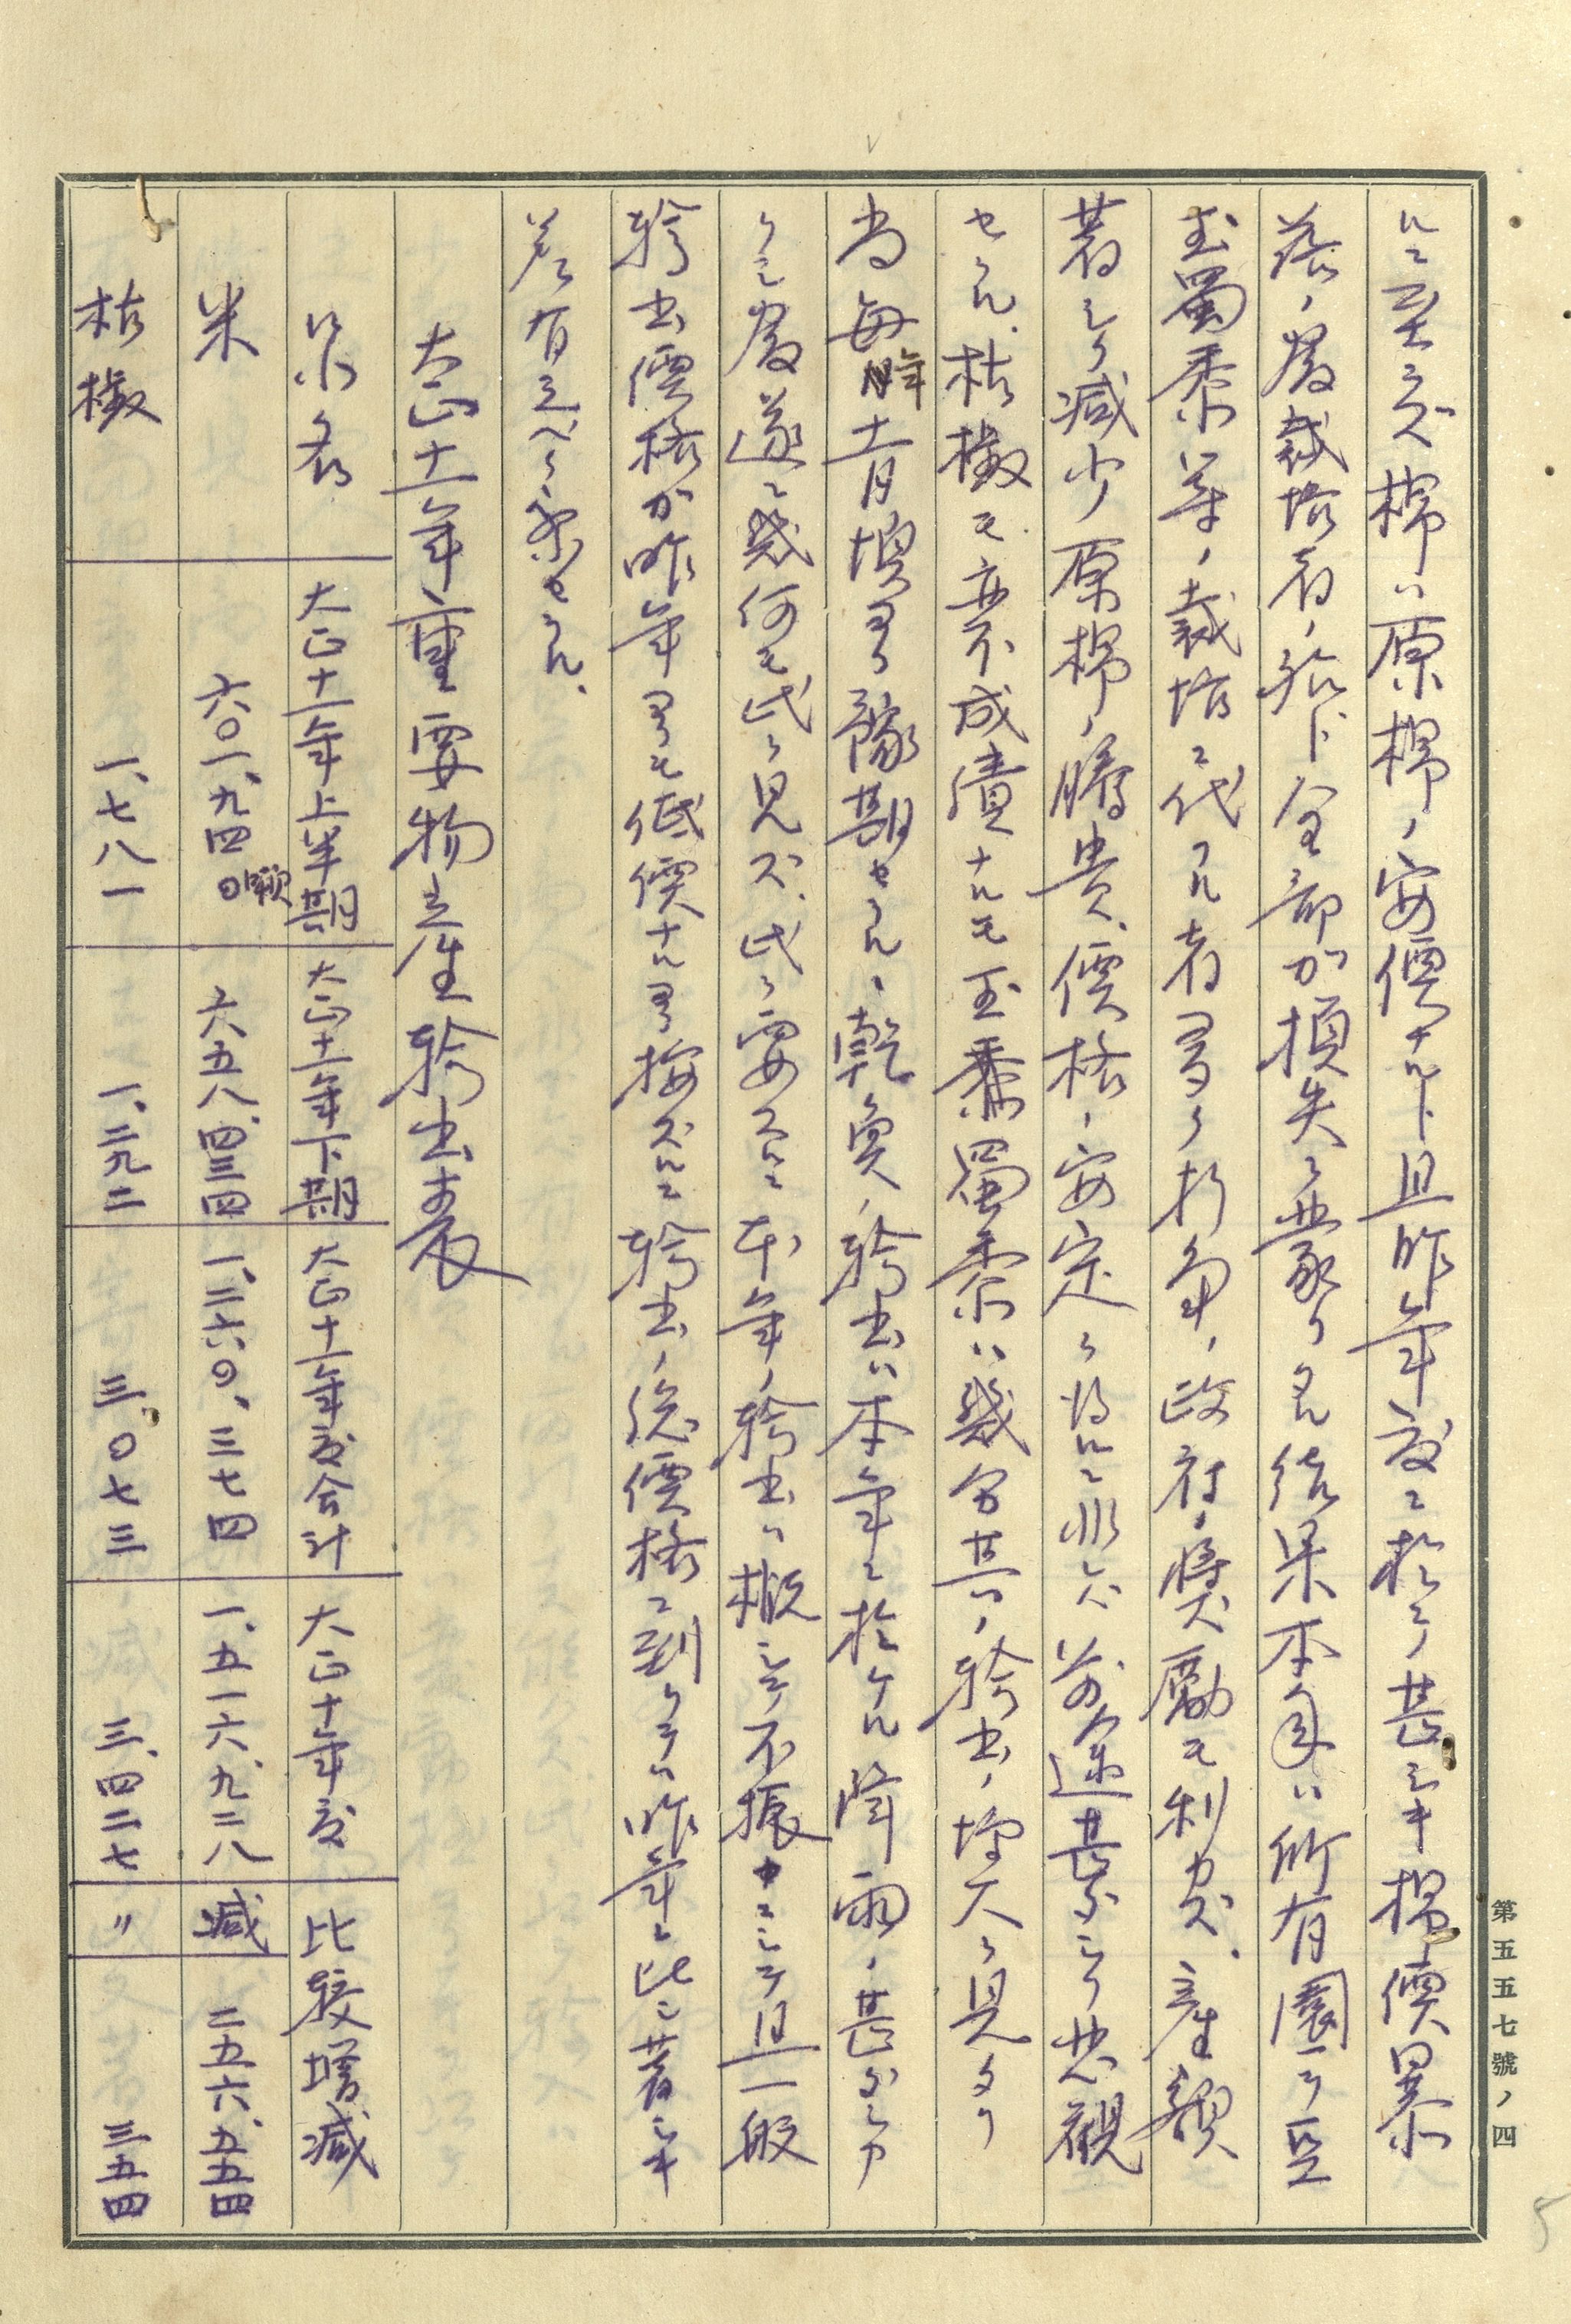 ルニ至ラズ棉ハ原棉ノ安價ナルト且昨年度ニ於テ甚シキ棉價暴
落ノ爲栽培者ノ殆ト全部カ損失ヲ蒙リタル結果本年ハ所有園ヲ豆
玉蜀黍等ノ栽培ニ代フル者多ク折角ノ政府ノ獎勵モ利カズ、産額
著シク減少原棉ノ騰貴、價格ノ安定ヲ得ルニ非レバ前途甚ダシク悲觀
セラル、枯檄モ亦不成績ナルモ玉黍蜀黍ハ幾分其ノ輸出ノ增大ヲ見タリ
尚毎年十一月頃ヨリ豫期セラルヽ乾魚ノ輸出ハ本年ニ於ケル降雨ノ甚ダシカ
リシ爲遂ニ幾何モ此ヲ見ズ、此ヲ要スルニ本年ノ輸出ハ概シテ不振ナリシテ且一般
輸出價格カ昨年ヨリモ低價ナルヨリ按ズルニ輸出ノ總價格ニ到リテハ昨年ニ比シ著シキ
差有之ベク察セラル、
大正十一年重要物産輸出表
品名
大正十一年上半期
大正十一年下期
大正十一年度合計
大正十年度
比較增減
米
六〇一、九四〇噸
六五八、四三四
一、二六〇、三七四
一、五一六、九二八
減
二五六、五五四
枯檄
一、七八一
一、二九二
三、〇七三
三、四二七
〃
三五四
第五五七號ノ四
5